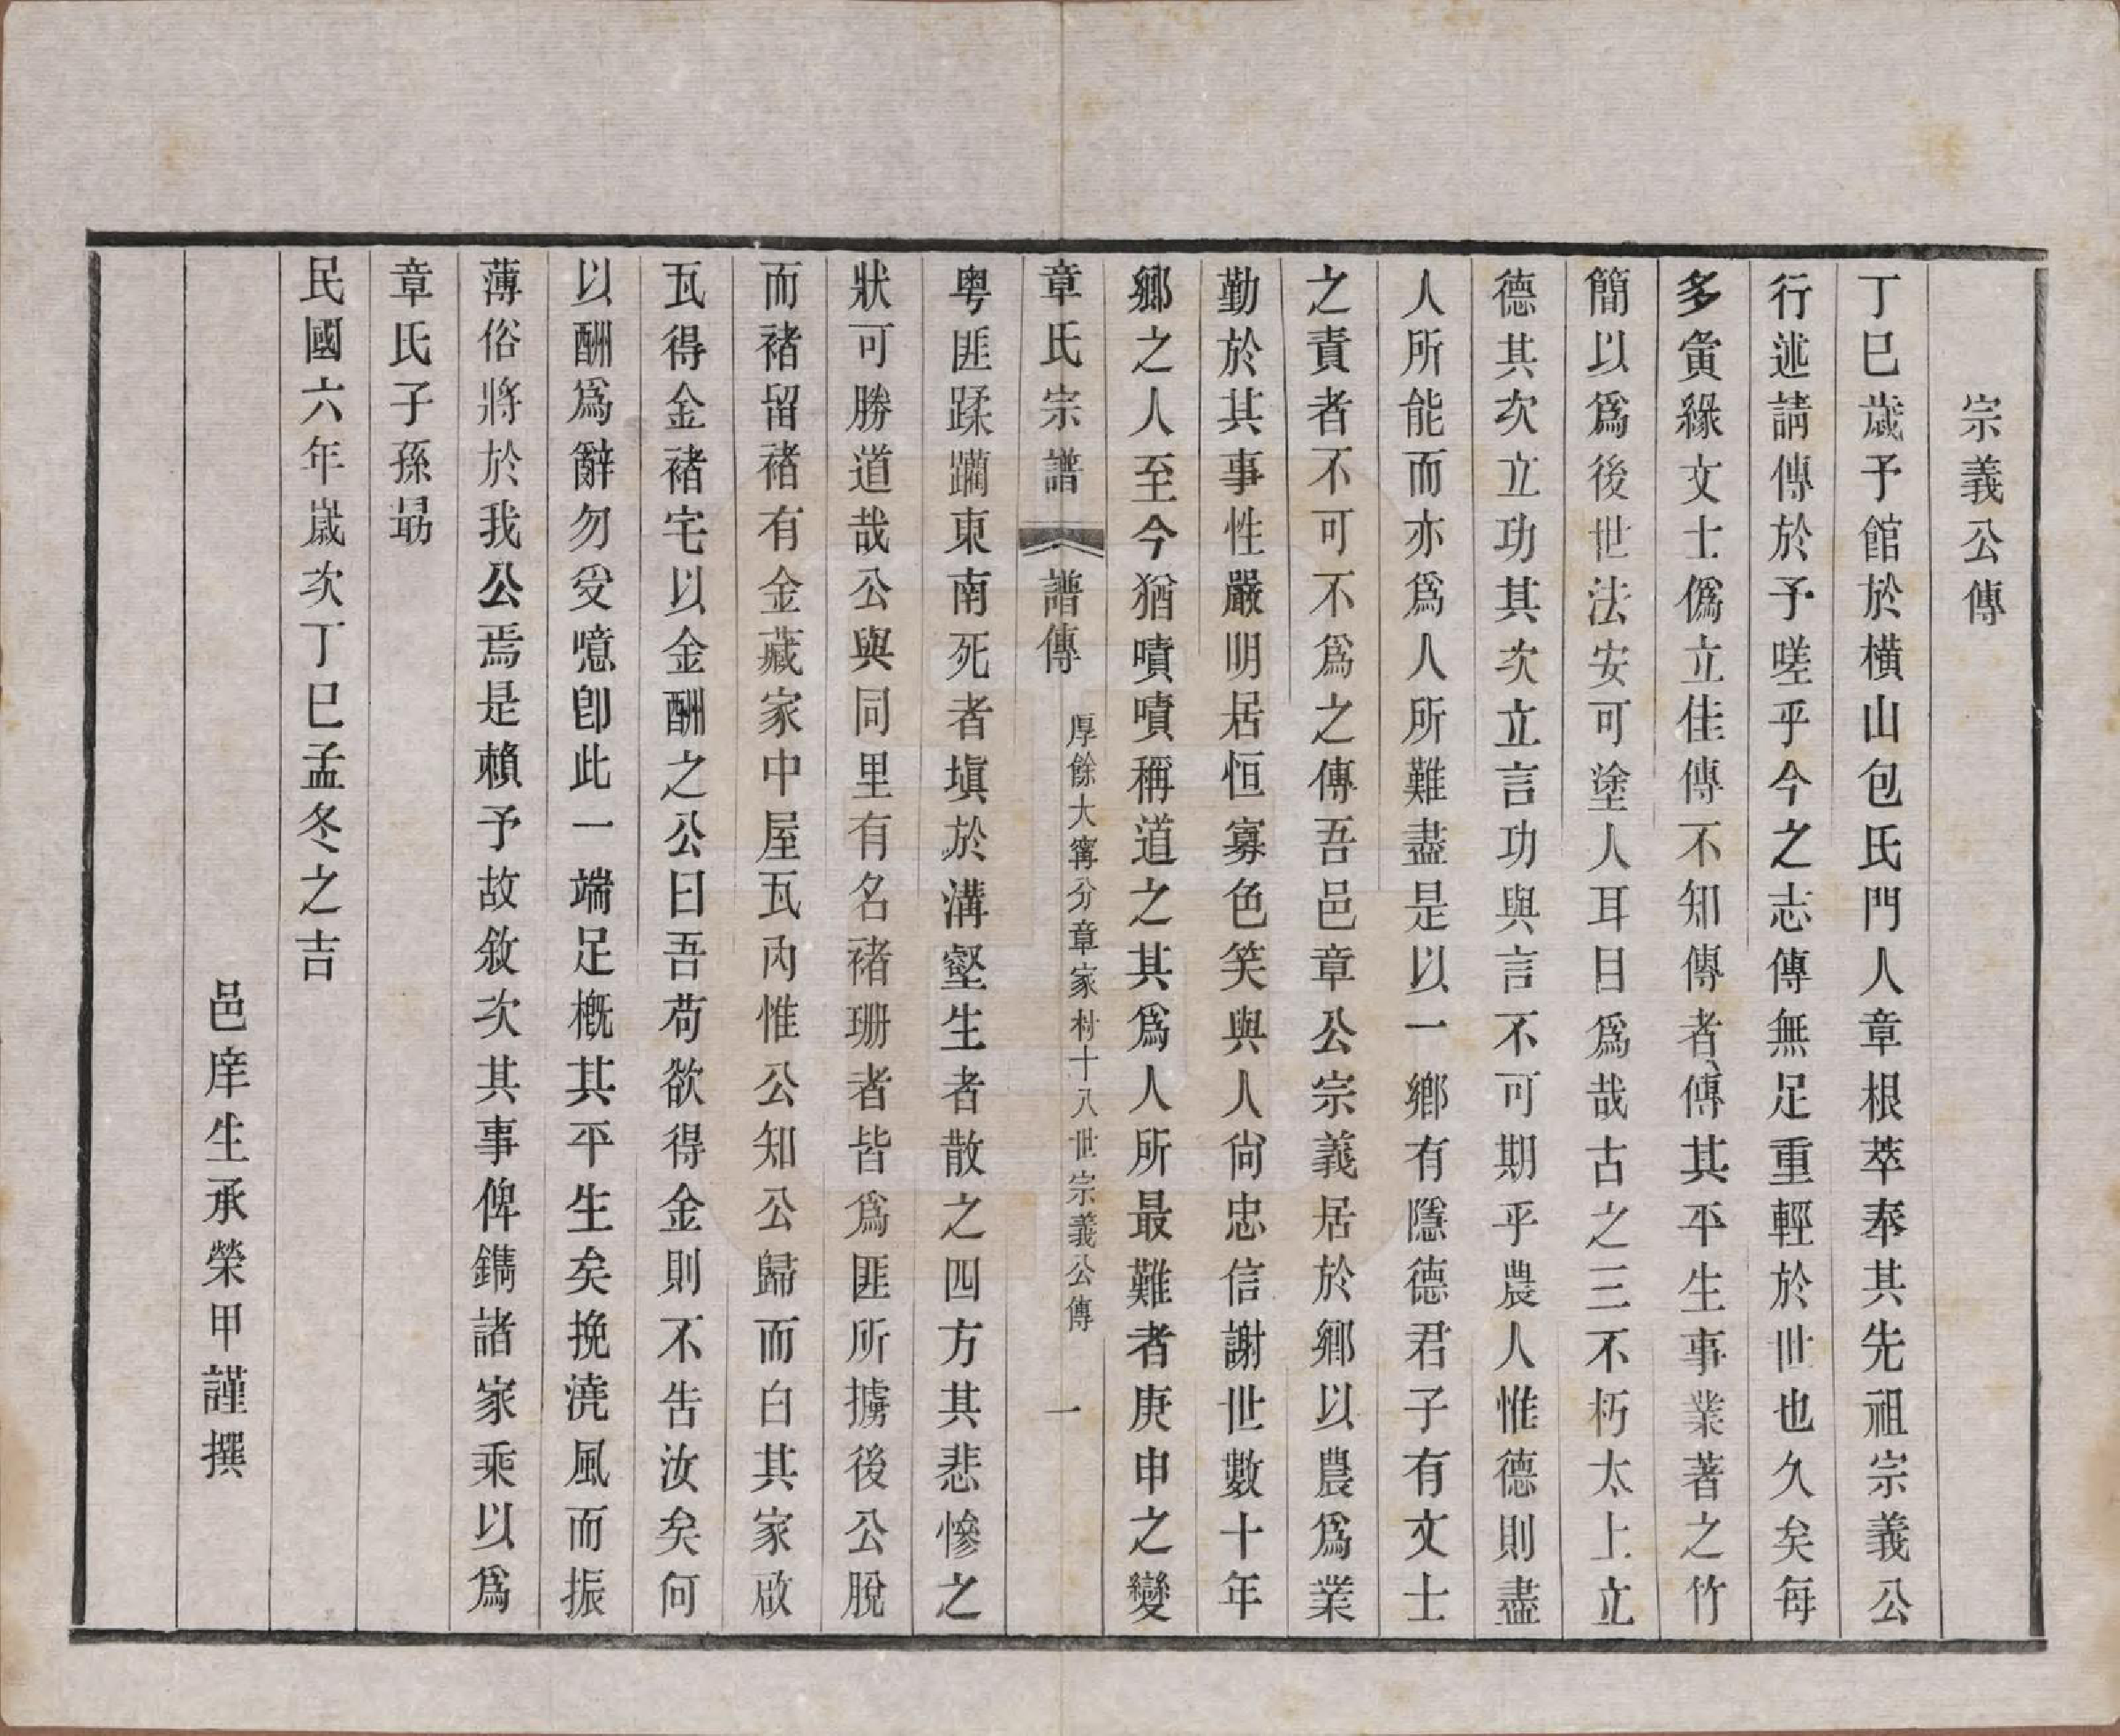 宗義公傳
丁巳歲予館於橫山包氏門人章根萃奉其先祖宗義公
行述請傳於予嗟乎今之志傳無足重輕於世也久矣每
多夤緣文士僞立佳傳不知傳者傳其平生事業著之竹
簡以爲後世法安可塗人耳目爲哉古之三不朽太上立
德其次立功其次立言功與言不可期乎農人惟德則盡
人所能而亦爲人所難盡是以一鄉有隱德君子有文士
之責者不可不爲之傳吾邑章公宗義居於鄉以農爲業
勤於其事性嚴明居恒寡色笑與人尙忠信謝世數十年
鄉之人至今猶嘖嘖稱道之其爲人所最難者庚申之變
章氏宗譜 譜傳 厚餘大甯分章家村十八世宗義公傳 一
粵匪蹂躪東南死者塡於溝壑生者散之四方其悲慘之
狀可勝道哉公與同里有名褚珊者皆爲匪所擄後公脫
而褚留褚有金藏家中屋瓦內惟公知公歸而白其家啟
瓦得金褚宅以金酬之公曰吾苟欲得金則不告汝矣何
以酬爲辭勿受噫卽此一端足槪其平生矣挽澆風而振
薄俗將於我公焉是賴予故敘次其事俾鐫諸家乘以爲
章氏子孫勗
民國六年歲次丁巳孟冬之吉
邑庠生承榮甲謹撰